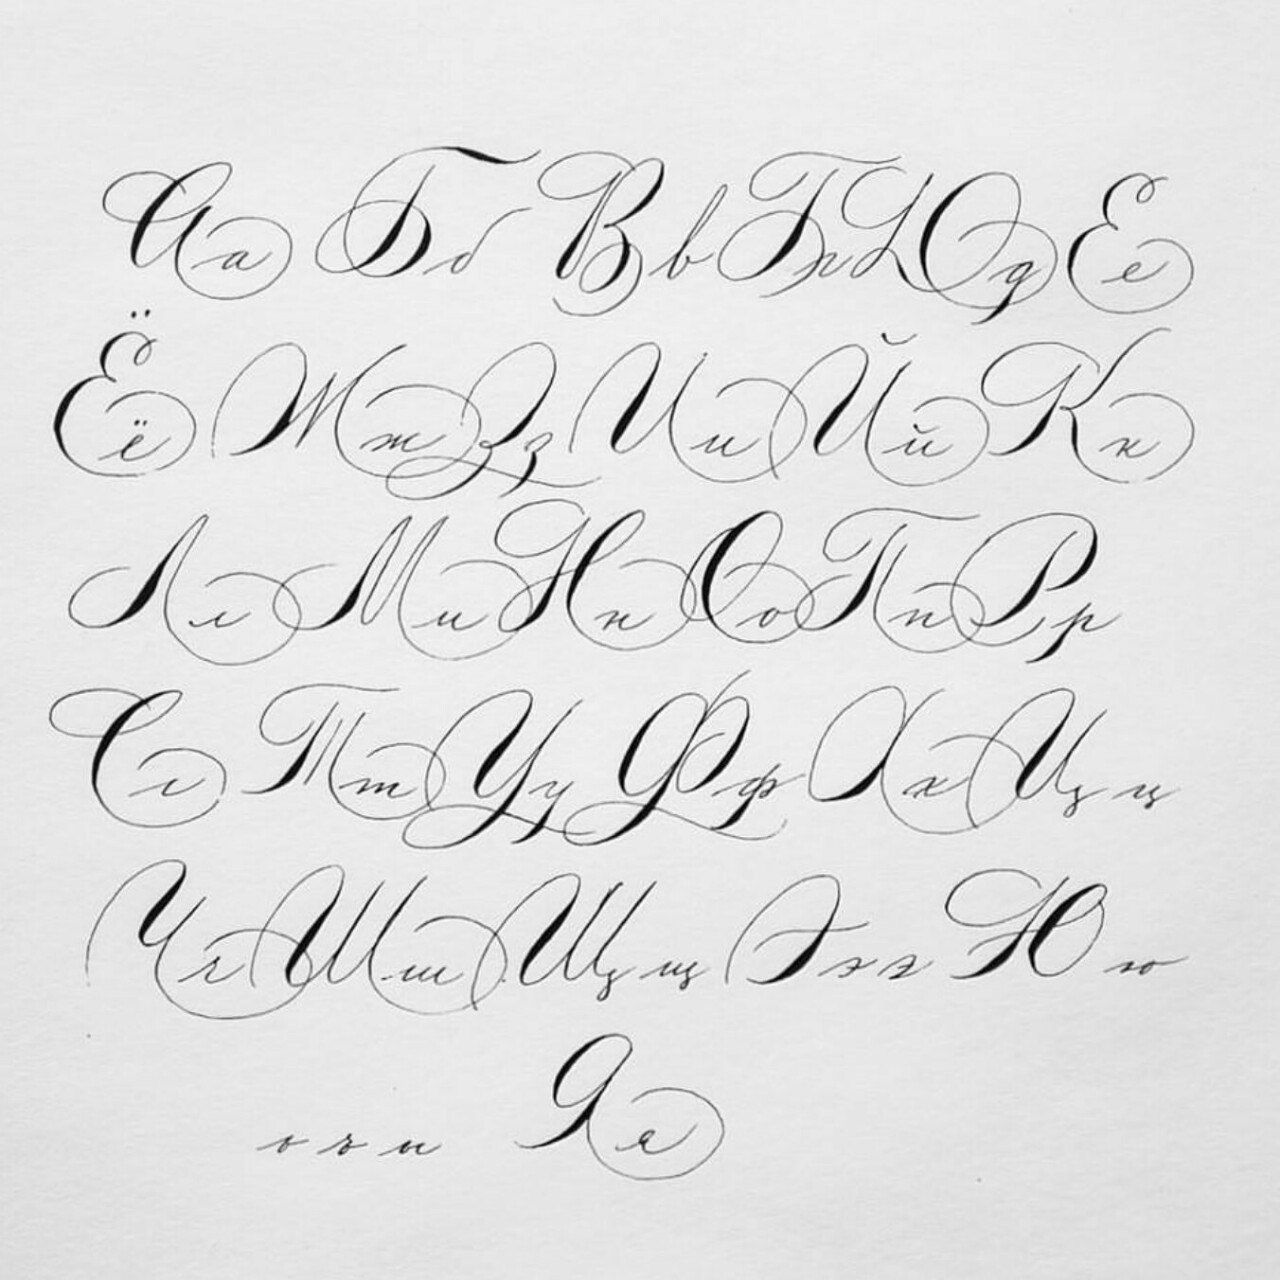 Аа Бб Вв Гг Дд Ее
Ёё Жж Зз Ии Йй Кк
Лл Мм Нн Оо Пп Рр
Сс Тт Уу Фф Хх Цц
Чч Шш Щщ Эээ Юю
ь ъ ы Яя